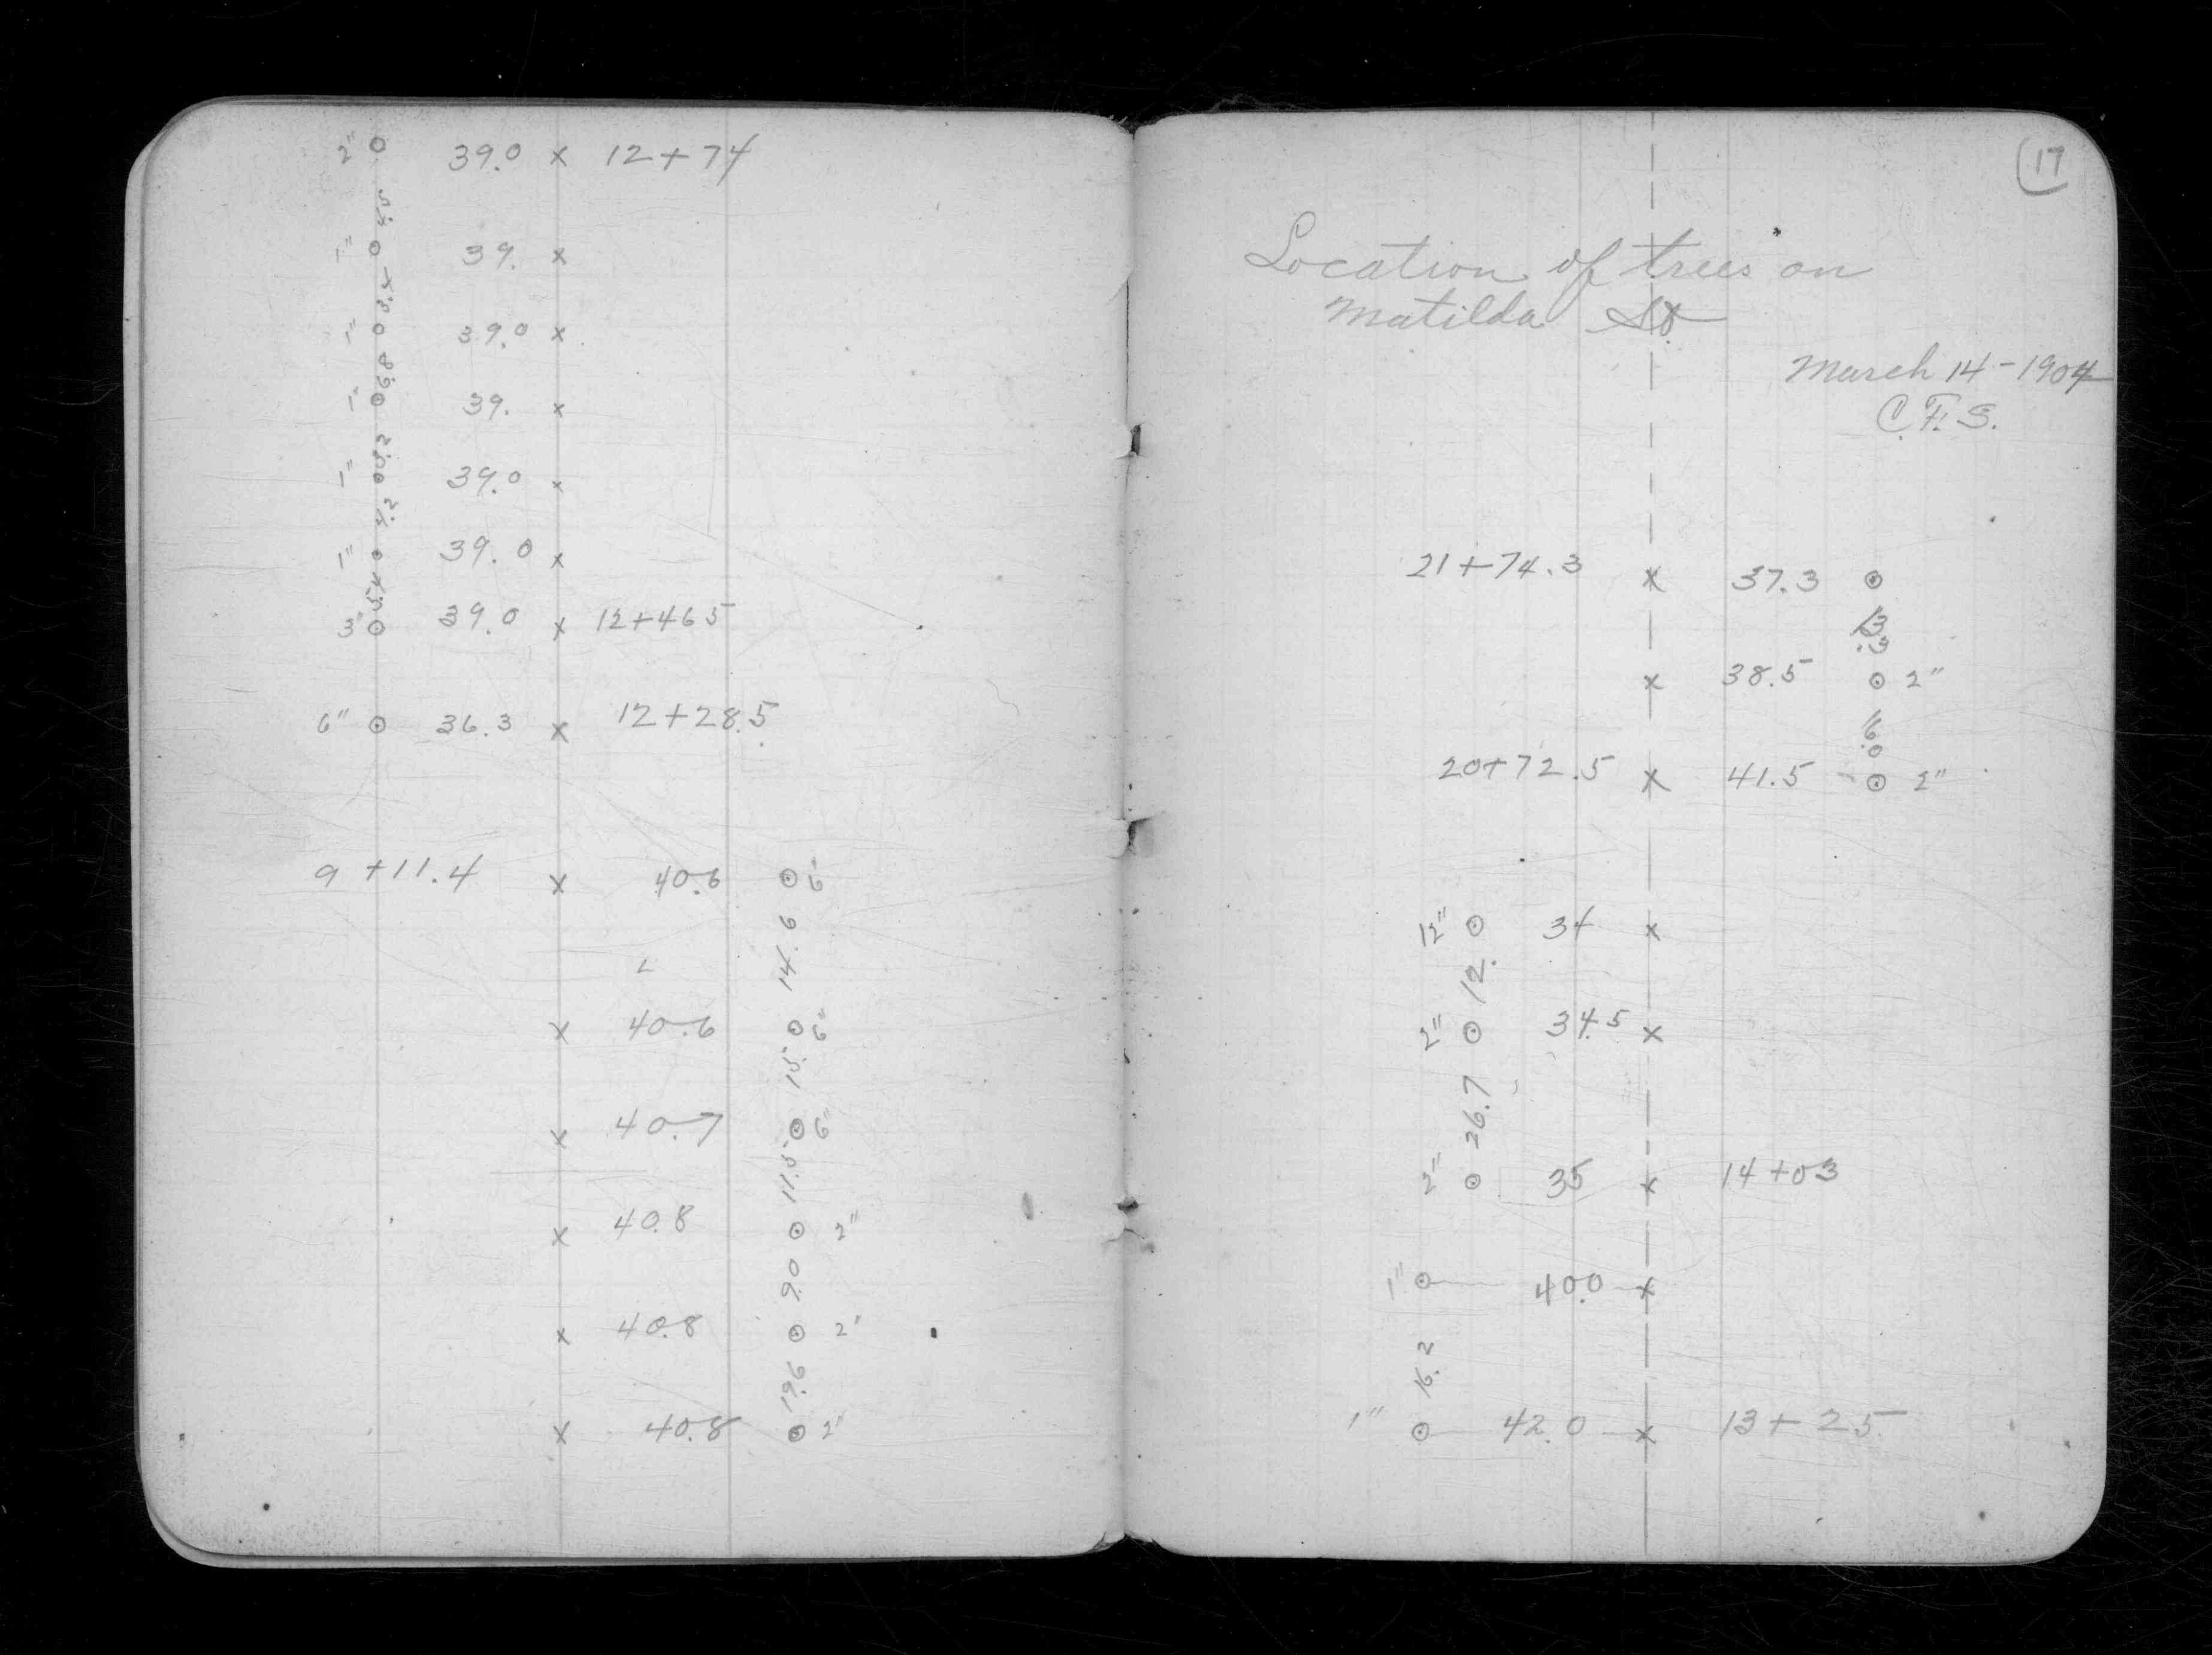 2" 39.0 x 12+74
1" 39. x
1" 39.0 x
6.8
1" 39. x
1" 39.0 x
1" 39.0 x
3" 39.0 x 12+46 5
6" 36.3 x 12+28.5
9 +11.4 x 40.6 6"
14.6
x 40.6 6"
15.
x 40.7 6"
11.5
x 40.8 2"
9.0
x 40.8 2"
19.6
x 40.8 2"
17
Location of trees on
Matilda St
March 14-1904
C.F.S.
21+74.3 x 37.3
13.3
x 38.5 2"
16.0
20+72.5 x 41.5 2"
12" 34 x
12.
2" 34.5 x
26.7
2" 35 x 14+03
1" 40.0 x
16.2
1" 42.0 x 13+25